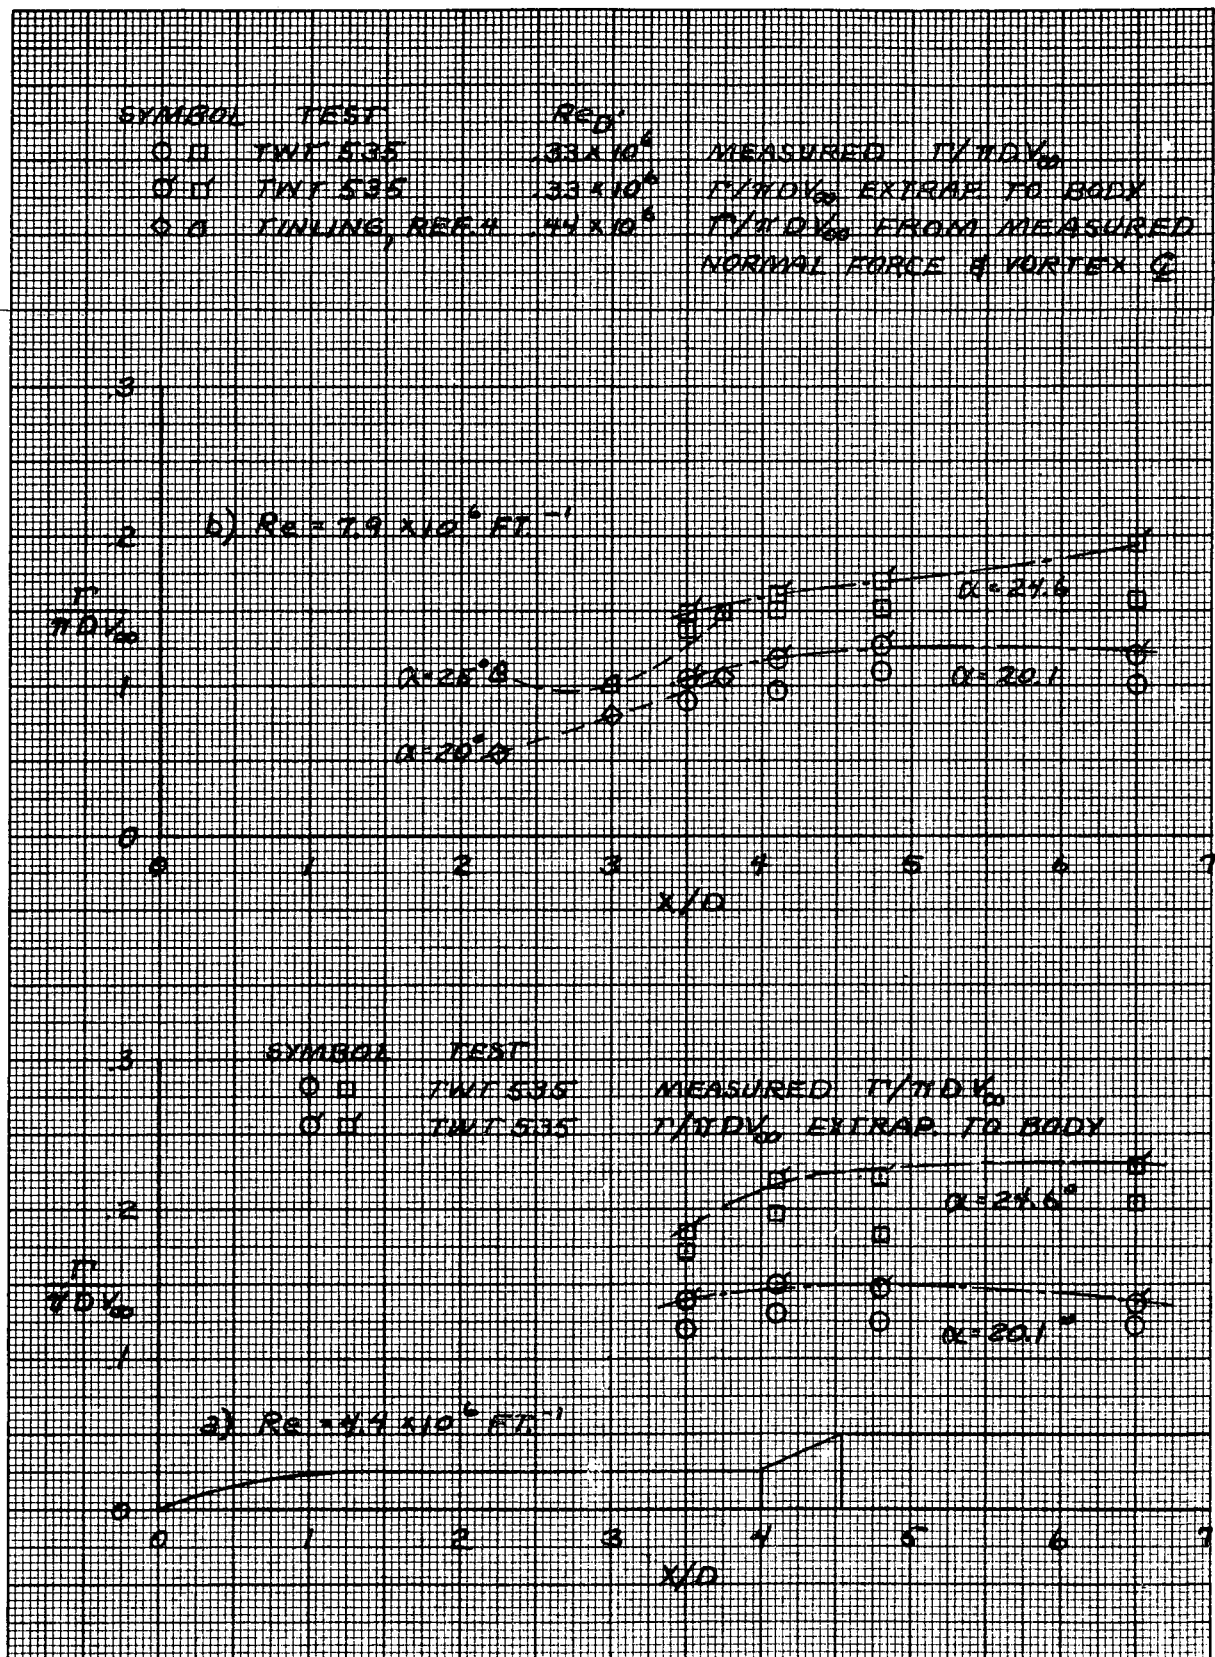 SYMBOL TEST Re_D
TWT 535 .33 x 10^6 MEASURED Γ/πDV∞
TWT 535 .33 x 10^6 Γ/πDV∞ EXTRAP. TO BODY
TINLING, REF. 4 .44 x 10^6 Γ/πDV∞ FROM MEASURED
NORMAL FORCE & VORTEX ℄
.3
b) Re = 7.9 x 10^6 FT.^-1
.2
α = 24.6
Γ
πDV∞
α = 25°
.1
α = 20.1
α = 20°
0
0 1 2 3 4 5 6 7
X/D
.3
SYMBOL TEST
TWT 535 MEASURED Γ/πDV∞
TWT 535 Γ/πDV∞ EXTRAP. TO BODY
.2
α = 24.6°
Γ
πDV∞
α = 20.1°
.1
a) Re = 4.4 x 10^6 FT.^-1
0
0 1 2 3 4 5 6 7
X/D